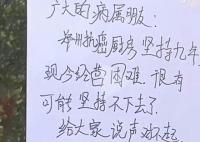 广大的病属朋友：
郑州抗癌厨房坚持九年，
现今经营困难，很有
可能坚持不下去了。
给大家说声对不起